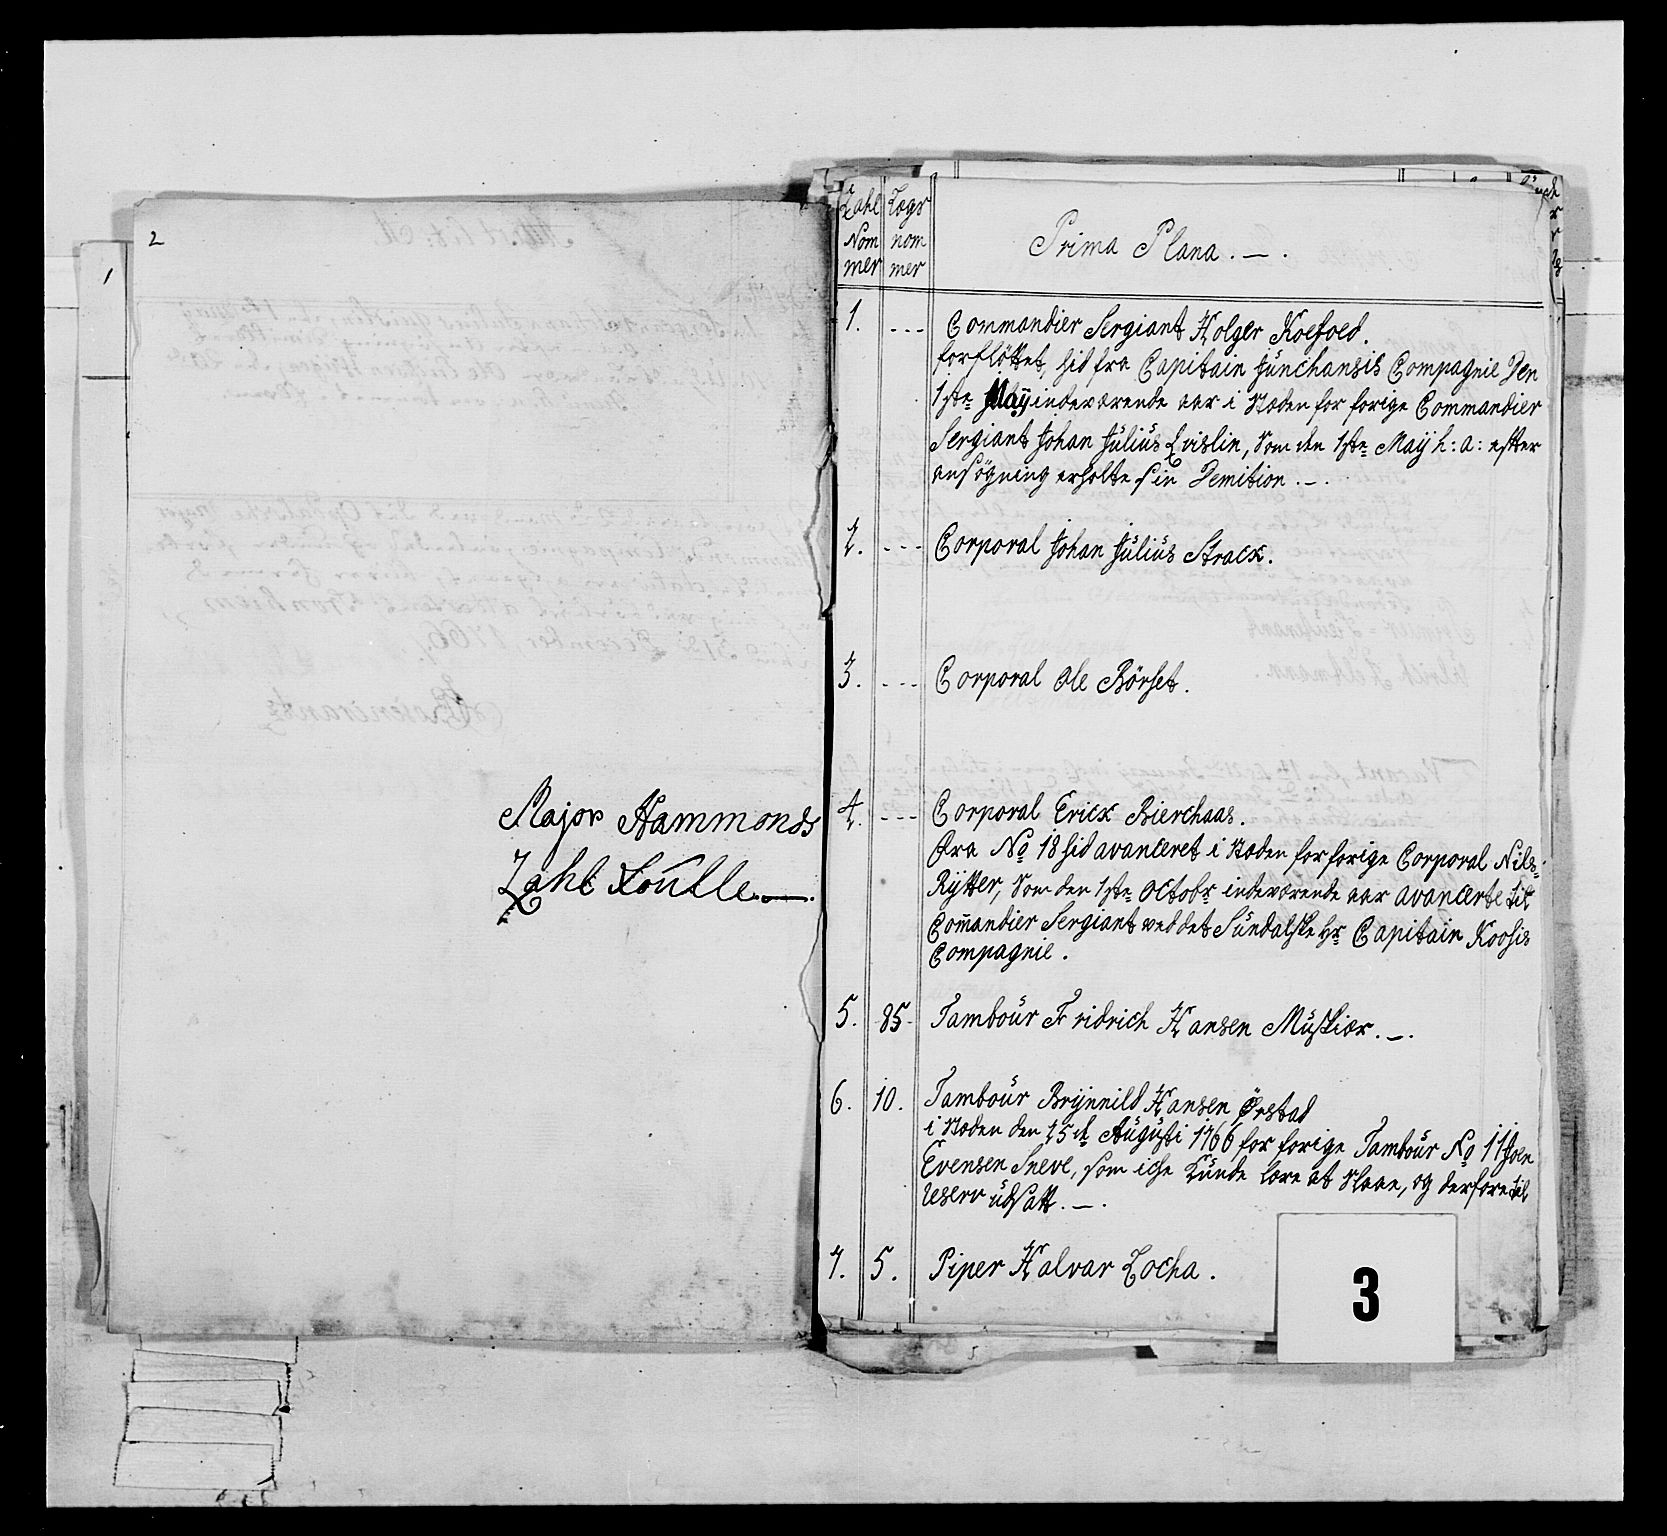 2
1
Major Hammonds
Zahl Roulle. —.
Zahl Nommer
Lægs nommer
Prima Plana. —.
1. --- Commandier Sergiant Holger Koefoed.
forfløttet, hid fra Capitain Junchansis Compagnie Den
1ste Maÿ indeværende aar i Stæden for forige Commandier
Sergiant Johan Julius Qvislin, som den 1ste Maÿ h: a: efter
ansøgning erholte sin Demition. —.
2. --- Corporal Johan Julius Strack.
3. --- Corporal Ole Børset.
4. --- Corporal Erick Bierchaas.
Fra No 18 hid avanceret i Stæden for forige Corporal Nils
Rÿtter, som den 1ste Octobr indeværende aar avancerte til
Com̄andier Sergiant ved det Sundalske Hr Capitain Koosis
Compagnie.
5. 85. Tambour Fridrich Hansen Muskiær. —.
6. 10. Tambour Brÿnnild Hansen Ørstad
i Stæden den 15de Augusti 1766 for forige Tambour No 11 Joen
Evensen Sneve, som icke kunde lære at slaae, og derfore til
reserv udsatt. —.
7. 5. Piper Halvar Locha.
3